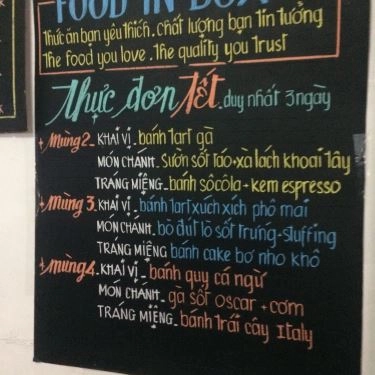 FOOD IN BOX
thức ăn bạn yêu thích. chất lượng bạn tin tưởng
the food you love. the quality you trust
Thực đơn Tết. duy nhất 3 ngày
+ Mùng 2 - KHAI VỊ - bánh tart gà
MÓN CHÁNH - Sườn sốt táo + xà lách khoai tây
TRÁNG MIỆNG - bánh sôcôla + kem espresso
+ Mùng 3. KHAI VỊ - bánh tart xúch xích phô mai
MÓN CHÁNH. bò đút lò sốt trứng - stuffing
TRÁNG MIỆNG bánh cake bơ nho khô
+ Mùng 4. KHAI VỊ - bánh quy cá ngừ
MÓN CHÁNH - gà sốt oscar + cơm
TRÁNG MIỆNG - bánh trái cây Italy